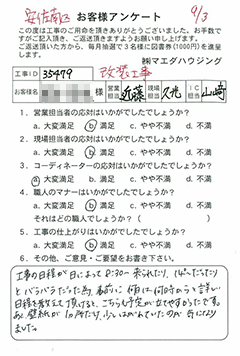 安佐南区 お客様アンケート 9/3
この度は工事のご用命を頂きありがとうございました。お手数で
すがご記入頂き、ご返送頂きますようお願い申し上げます。
ご返送頂いた方から、毎月抽選で3名様に図書券(1000円)を進呈
します。
㈱マエダハウジング
工事ID 35479 改装工事
お客様名 様 営業担当 近藤 現場担当 久光 IC担当 山﨑
1. 営業担当者の応対はいかがでしたでしょうか?
a. 大変満足 b. 満足 c. やや不満 d. 不満
2. 現場担当者の応対はいかがでしたでしょうか?
a. 大変満足 b. 満足 c. やや不満 d. 不満
3. コーディネーターの応対はいかがでしたでしょうか?
a. 大変満足 b. 満足 c. やや不満 d. 不満
4. 職人のマナーはいかがでしたでしょうか?
a. 大変満足 b. 満足 c. やや不満 d. 不満
それはどの職人でしょうか? ( )
5. 工事の仕上がりはいかがでしたでしょうか?
a. 大変満足 b. 満足 c. やや不満 d. 不満
6. その他、ご意見・ご要望をお書き下さい。
工事の日程が日によって8:30~来られたり、14:00~だったり
とバラバラだった為、事前に何日は何時からと詳しい
日程を教えて頂けると、こちらも予定が立てやすかったです。
あと壁紙が1ヶ所だけ、少しはがれていたのが気になり
ました。